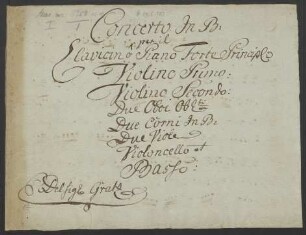 Concerto In B:
per il
Clavicin o Piano Forte Principle
Violino Primo:
Violino Secondo:
Due Oboi
Due Corni In B:
Due Viole
Violoncello et
Basso:
Del Sigl: Grætz